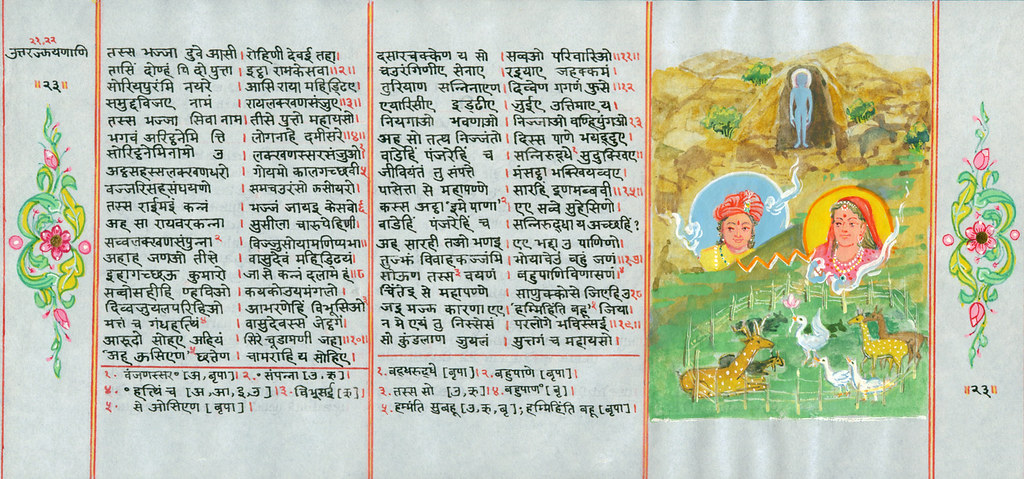 २१,२२
उत्तरज्झयणाणि
॥२३॥
तस्स भज्जा दुवे आसी । रोहिणी देवई तहा ।
तासिं दोण्हं पि दो पुत्ता । इट्ठा रामकेसवा ॥२॥
सोरियपुरंमि नयरे । आसि राया महिड्ढिए ।
समुद्दविजए नामं । रायलक्खणसंजुए ॥३॥
तस्स भज्जा सिवा नाम । तीसे पुत्तो महायसो ।
भगवं अरिट्ठनेमि त्ति । लोगनाहे दमीसरे ॥४॥
सोरिट्ठनेमिनामो उ । लक्खणस्सरसंजुओ ।
अट्ठसहस्सलक्खणधरो । गोयमो कालगच्छवी ॥५
वज्जरिसहसंघयणो । समचउरंसो झसोयरो ।
तस्स राईमइं कन्नं । भज्जं जायइ केसवो ॥६
अह सा रायवरकन्ना । सुसीला चारुपेहिणी ।
सव्वलक्खणसंपुन्ना २ । विज्जुसोयामणिप्पभा ॥
अहाह जणओ तीसे । वासुदेवं महिड्ढियं ।
इहागच्छऊ कुमारो । जा से कन्नं दलामहं ॥८
सव्वोसहीहि ण्हविओ । कयकोउयमंगलो ।
दिव्वजुयलपरिहिओ । आभरणेहिं विभूसिओ
मत्तं च गंधहत्थिं ४ । वासुदेवस्स जेट्ठगं ।
आरूढो सोहए अहियं । सिरे चूडामणी जहा ॥१०॥
'अह ऊसिएण' ५ छत्तेण । चामराहि य सोहिए ।
१. वंजणस्सर॰ [अ, बृपा] । २. ॰संपन्ना [उ, ऋ] ।
४. ॰हत्थिं च [अ, आ, इ, उ] । ३. विभूसई [ऋ] ।
५. से ओसिएण [बृपा] ।
दसारचक्केण य सो । सव्वओ परिवारिओ ॥११॥
चउरंगिणीए सेनाए । रइयाए जहक्कमं ।
तुरियाण सन्निनाएण । दिव्वेण गगणं फुसे ॥१२
एयारिसीए इड्ढीए । जुईए उत्तिमाए य ।
नियगाओ भवणाओ । निज्जाओ वण्हिपुंगओ १३
अह सो तत्थ निज्जंतो । दिस्स पाणे भयद्दुए
वाडेहिं पंजरेहिं च । सन्निरुद्धे १ सुदुक्खिए ॥
जीवियंतं तु संपत्ते । मंसट्ठा भक्खियव्वए ।
पासेत्ता से महापण्णे । सारहिं इणमब्बवी ॥१५॥
कस्स अट्ठा 'इमे पाणा' २ । एए सव्वे सुहेसिणो ।
वाडेहिं पंजरेहिं च । सन्निरुद्धा य अच्छहिं ?
अह सारही तओ भणइ । एए भद्दा उ पाणिणो ।
तुज्झं विवाहकज्जंमि । भोयावेउं बहुं जणं ॥१७॥
सोऊण तस्स ३ वयणं । बहुपाणिविणासणं ४ ।
चिंतेइ से महापण्णे । साणुक्कोसे जिएहि उ १८
जइ मज्झ कारणा एए । 'हम्मिहिंति बहू' ५ जिया ।
न मे एयं तु निस्सेसं । परलोगे भविस्सई ॥१९॥
सो कुंडलाण जुयलं । सुत्तगं च महायसो ।
१. बद्धरुद्धे [बृपा] २. बहुपाणे [बृपा] ।
३. तस्स सो [उ, ऋ] ४. बहुपाण॰ [बृ] ।
५. हम्मंति सुबहू [उ, ऋ, बृ] ; हम्मिहिंति बहू [बृपा] ।
॥२३॥